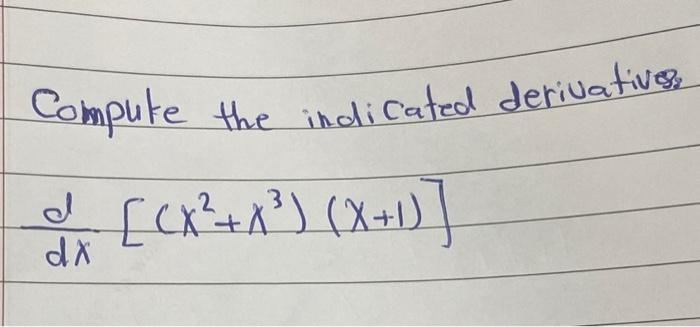 Compute the indicated derivatives
d/dx [(x²+x³) (x+1)]